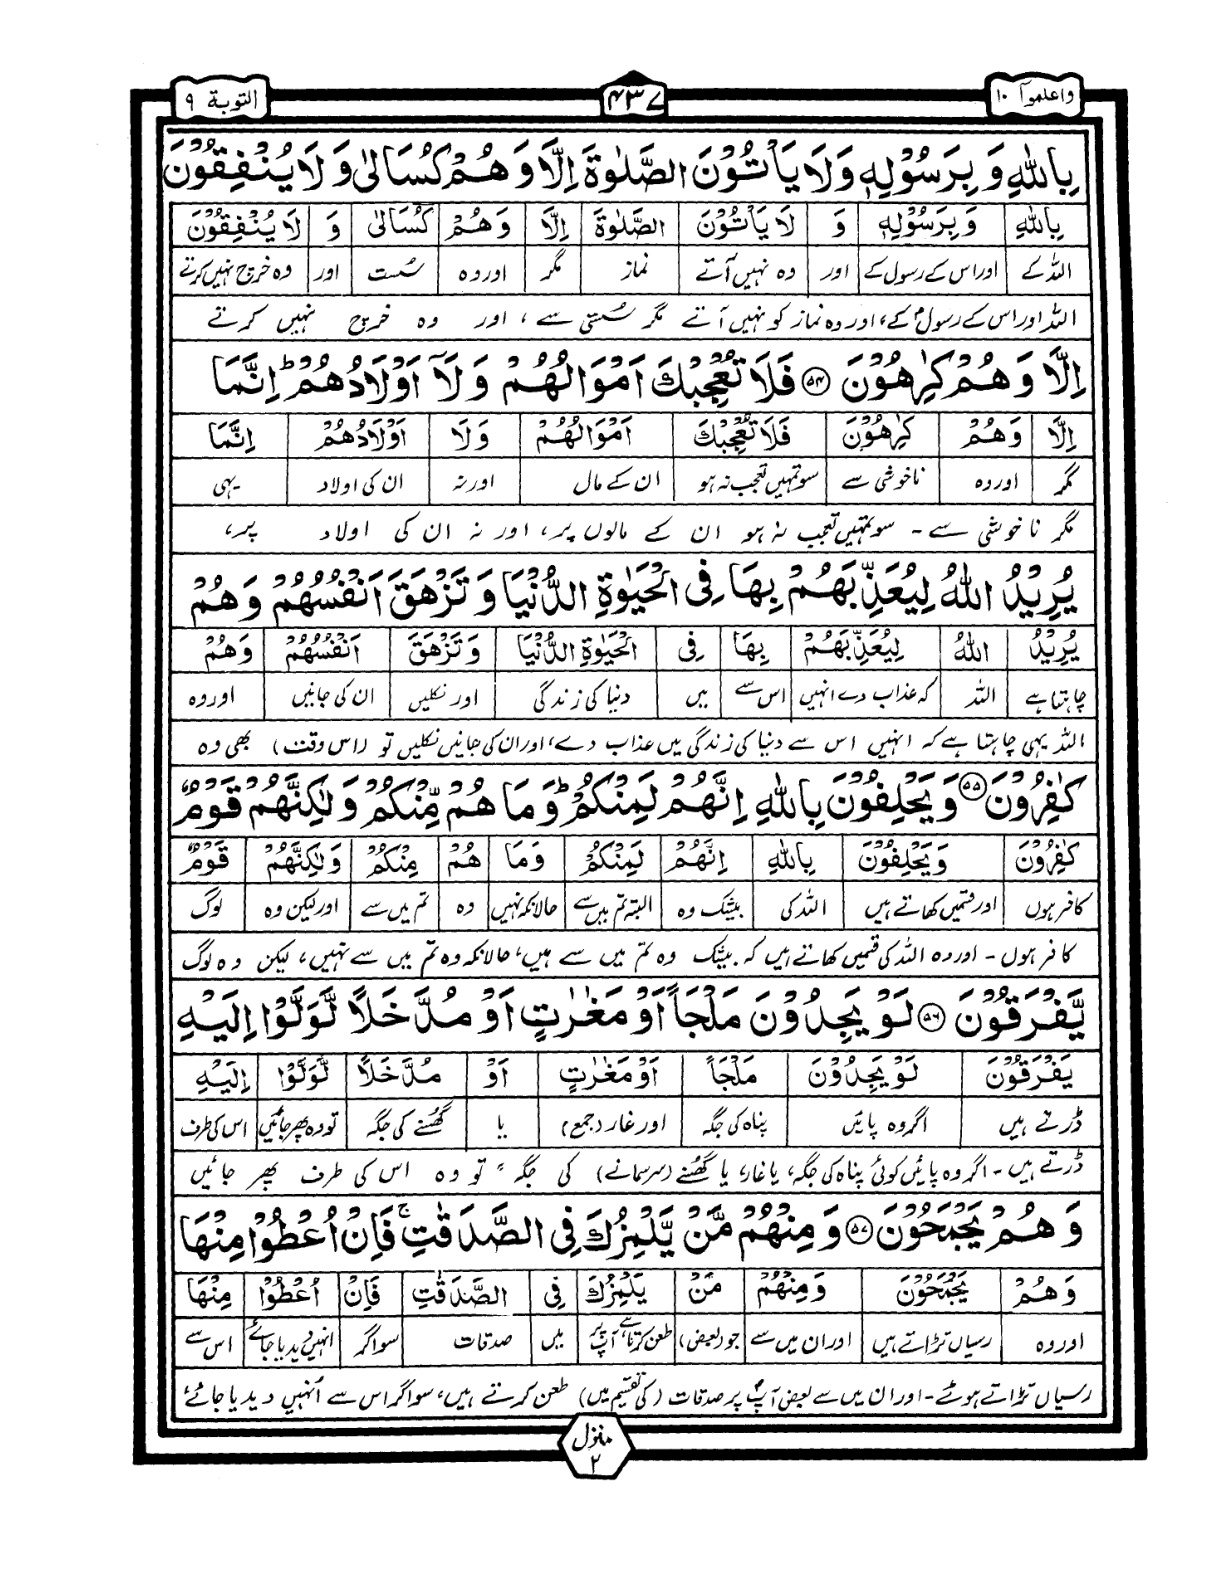 واعلموآ ۱۰
۴۳۷
التوبة ۹
بِاللّٰهِ وَ بِرَسُوْلِهٖ وَلَا يَاْتُوْنَ الصَّلٰوةَ اِلَّا وَهُمْ كُسَالٰى وَلَا يُنْفِقُوْنَ
بِاللّٰهِ وَ بِرَسُوْلِهٖ وَ لَا يَاْتُوْنَ الصَّلٰوةَ اِلَّا وَهُمْ كُسَالٰى وَ لَا يُنْفِقُوْنَ
اللہ کے اور اس کے رسول کے اور وہ نہیں آتے نماز مگر اور وہ سُست اور وہ خرچ نہیں کرتے
اللہ اور اس کے رسولؐ کے، اور وہ نماز کو نہیں آتے مگر سُستی سے، اور وہ خرچ نہیں کرتے
اِلَّا وَهُمْ كٰرِهُوْنَ ۵۴ فَلَا تُعْجِبْكَ اَمْوَالُهُمْ وَلَآ اَوْلَادُهُمْ ؕ اِنَّمَا
اِلَّا وَهُمْ كٰرِهُوْنَ فَلَا تُعْجِبْكَ اَمْوَالُهُمْ وَلَا اَوْلَادُهُمْ اِنَّمَا
مگر اور وہ ناخوشی سے سو تمہیں تعجب نہ ہو ان کے مال اور نہ ان کی اولاد یہی
مگر ناخوشی سے - سو تمہیں تعجب نہ ہو ان کے مالوں پر، اور نہ ان کی اولاد پر،
يُرِيْدُ اللّٰهُ لِيُعَذِّبَهُمْ بِهَا فِى الْحَيٰوةِ الدُّنْيَا وَ تَزْهَقَ اَنْفُسُهُمْ وَهُمْ
يُرِيْدُ اللّٰهُ لِيُعَذِّبَهُمْ بِهَا فِى الْحَيٰوةِ الدُّنْيَا وَ تَزْهَقَ اَنْفُسُهُمْ وَهُمْ
چاہتا ہے اللہ کہ عذاب دے انہیں اس سے میں دنیا کی زندگی اور نکلیں ان کی جانیں اور وہ
اللہ یہی چاہتا ہے کہ انہیں اس سے دنیا کی زندگی میں عذاب دے، اور ان کی جانیں نکلیں تو (اس وقت) بھی وہ
كٰفِرُوْنَ ۵۵ وَ يَحْلِفُوْنَ بِاللّٰهِ اِنَّهُمْ لَمِنْكُمْ ؕ وَمَا هُمْ مِّنْكُمْ وَلٰكِنَّهُمْ قَوْمٌ
كٰفِرُوْنَ وَ يَحْلِفُوْنَ بِاللّٰهِ اِنَّهُمْ لَمِنْكُمْ وَمَا هُمْ مِنْكُمْ وَلٰكِنَّهُمْ قَوْمٌ
کافر ہوں اور قسمیں کھاتے ہیں اللہ کی بیشک وہ البتہ تم میں سے حالانکہ نہیں وہ تم میں سے اور لیکن وہ لوگ
کافر ہوں - اور وہ اللہ کی قسمیں کھاتے ہیں کہ بیشک وہ تم میں سے ہیں، حالانکہ وہ تم میں سے نہیں، لیکن وہ لوگ
يَّفْرَقُوْنَ ۵۶ لَوْ يَجِدُوْنَ مَلْجَاً اَوْ مَغٰرٰتٍ اَوْ مُدَّخَلًا لَّوَلَّوْا اِلَيْهِ
يَفْرَقُوْنَ لَوْ يَجِدُوْنَ مَلْجَاً اَوْ مَغٰرٰتٍ اَوْ مُدَّخَلًا لَّوَلَّوْا اِلَيْهِ
ڈرتے ہیں اگر وہ پائیں پناہ کی جگہ اور غار (جمع) یا گھُسنے کی جگہ تو وہ پھر جائیں اس کی طرف
ڈرتے ہیں - اگر وہ پائیں کوئی پناہ کی جگہ، یا غار، یا گھُسنے (سر سمانے) کی جگہ، تو وہ اس کی طرف پھر جائیں
وَهُمْ يَجْمَحُوْنَ ۵۷ وَمِنْهُمْ مَّنْ يَّلْمِزُكَ فِى الصَّدَقٰتِ ۚ فَاِنْ اُعْطُوْا مِنْهَا
وَهُمْ يَجْمَحُوْنَ وَمِنْهُمْ مَنْ يَلْمِزُكَ فِى الصَّدَقٰتِ فَاِنْ اُعْطُوْا مِنْهَا
اور وہ رسیاں تڑاتے ہیں اور ان میں سے جو (بعض) طعن کرتا ہے آپؐ پر میں صدقات سو اگر انہیں دیدیا جائے اس سے
رسیاں تڑاتے ہوئے - اور ان میں سے بعض آپؐ پر صدقات (کی تقسیم میں) طعن کرتے ہیں، سو اگر اس سے انہیں دیدیا جائے
منزل
۲